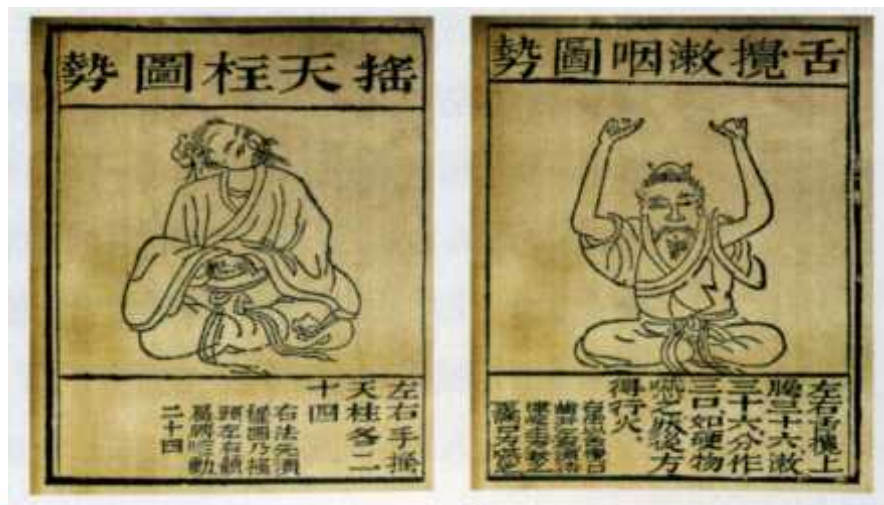 搖天柱圖勢
左右手搖
天柱各二
十四
右法先須
握固乃搖
頭左右顧
肩膊隨動
二十四
舌攪漱咽圖勢
左右舌攪上
腭三十六漱
三十六分作
三口如硬物
嚥之然後方
得行火